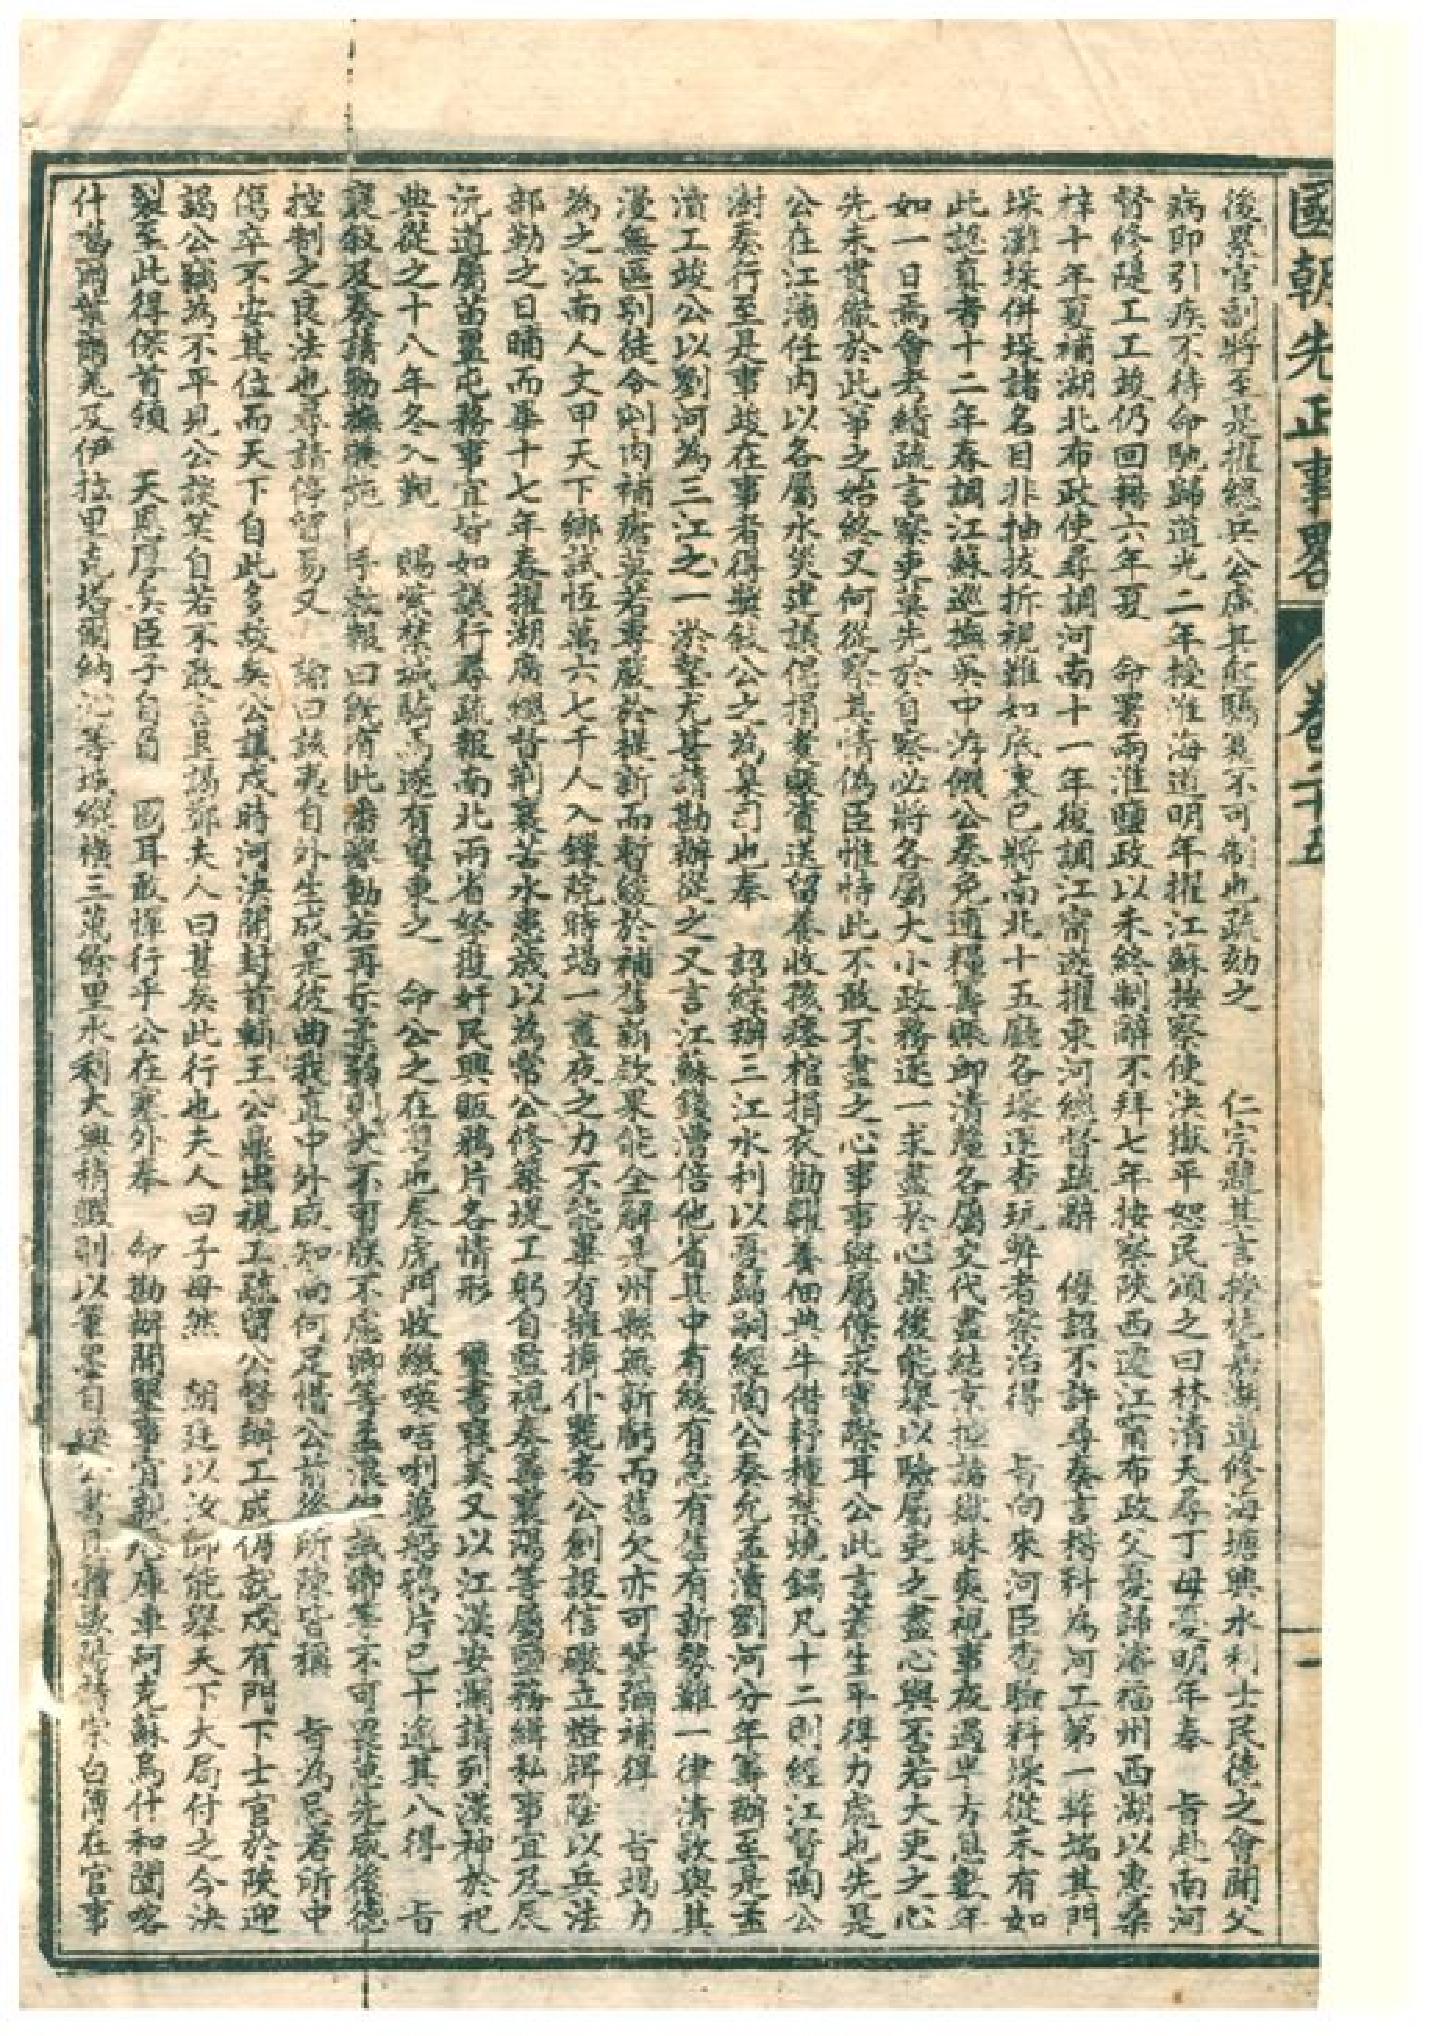 國朝先正事畧 卷二十五 一
後累官副將至是擢總兵公慮其驕蹇不可制也疏劾之 仁宗韙其言授杭嘉湖道修海塘興水利士民德之會聞父
病即引疾不待命馳歸道光二年授淮海道明年擢江蘇按察使決獄平恕民頌之曰林清天尋丁母憂明年奉 旨赴南河
督修隄工工竣仍回籍六年夏 命署兩淮鹽政以未終制辭不拜七年按察陝西遷江甯布政父憂歸濬福州西湖以惠桑
梓十年夏補湖北布政使尋調河南十一年復調江甯遂擢東河總督疏辭 優詔不許尋奏言稭料為河工第一弊端其門
垛灘垛併垛諸名目非抽拔拆視難如底裏已將南北十五廳各垛逐查玩弊者察治得 旨向來河臣查驗料垛從未有如
此認真者十二年春調江蘇巡撫吳中洊饑公奏免逋糧籌賑卹清釐各屬交代盡結京控諸獄昧爽視事夜過半方息數年
如一日焉會考績疏言察吏莫先於自察必將各屬大小政務逐一求盡於心然後能舉以驗屬吏之盡心與否若大吏之心
先未貫徹於此事之始終又何從察其情偽臣惟恃此不敢不盡之心事事與屬僚求實際耳公此言蓋生平得力處也先是
公在江藩任內以各屬水災建議倡捐煮賑資送留養收孩瘞棺捐衣勸糶養佃典牛借籽種禁燒鍋凡十二則經江督陶公
澍奏行至是事竣在事者得獎敍公之為臬司也奉 詔綜辦三江水利以憂歸嗣經陶公奏允孟瀆劉河分年籌辦至是孟
瀆工竣公以劉河為三江之一淤墊尤甚請勘辦從之又言江蘇錢漕倍他省其中有緩有急有舊有新勢難一律清款與其
漫無區別徒令剜肉補瘡莫若專嚴於提新而暫緩於補舊新欵果能全解是州縣無新虧而舊欠亦可冀彌補得 旨竭力
為之江南人文甲天下鄉試恆萬六七千人入鏁院時竭一晝夜之力不能畢有擁擠仆斃者公創設信礮立燈牌陰以兵法
部勒之日晡而畢十七年春擢湖廣總督荆襄苦水患歲以為常公修築堤工躬自監視奏籌襄陽等屬鹽務緝私事宜及辰
沅道屬苗疆屯務事宜皆如議行尋疏報南北兩省拏獲奸民興販鴉片各情形 璽書襃美又以江漢安瀾請列漢神於祀
典從之十八年冬入覲 賜紫禁城騎馬遂有粵東之 命公之在粵也奏虎門收繳嘆咭唎躉船鴉片已十逾其八得 旨
襃敍及奏請勦撫兼施 手敕報曰既有此番舉動若再示柔弱則大不可朕不慮卿等孟浪但誡卿等不可畏葸先威後德
控制之良法也尋請停貿易又 諭曰該夷自外生成是彼曲我直中外咸知尚何足惜公前後所陳皆稱 旨為忌者所中
傷卒不安其位而天下自此多故矣公謫戍時河決開封首輔王公鼎出視工疏留公督辦工成仍就戍有門下士官於陝迎
謁公竊為不平見公談笑自若不敢言且謁鄭夫人曰甚矣此行也夫人曰子毋然 朝廷以汝師能舉天下大局付之今決
裂至此得保首領 天恩厚矣臣子自負 國耳敢憚行乎公在塞外奉 命勘辦開墾事宜親歷庫車阿克蘇烏什和闐喀
什噶爾葉爾羌及伊拉里克塔爾納沁等城縱橫三萬餘里水利大興稍暇則以筆墨自娛公書具體歐陽詩宗白傅在官事